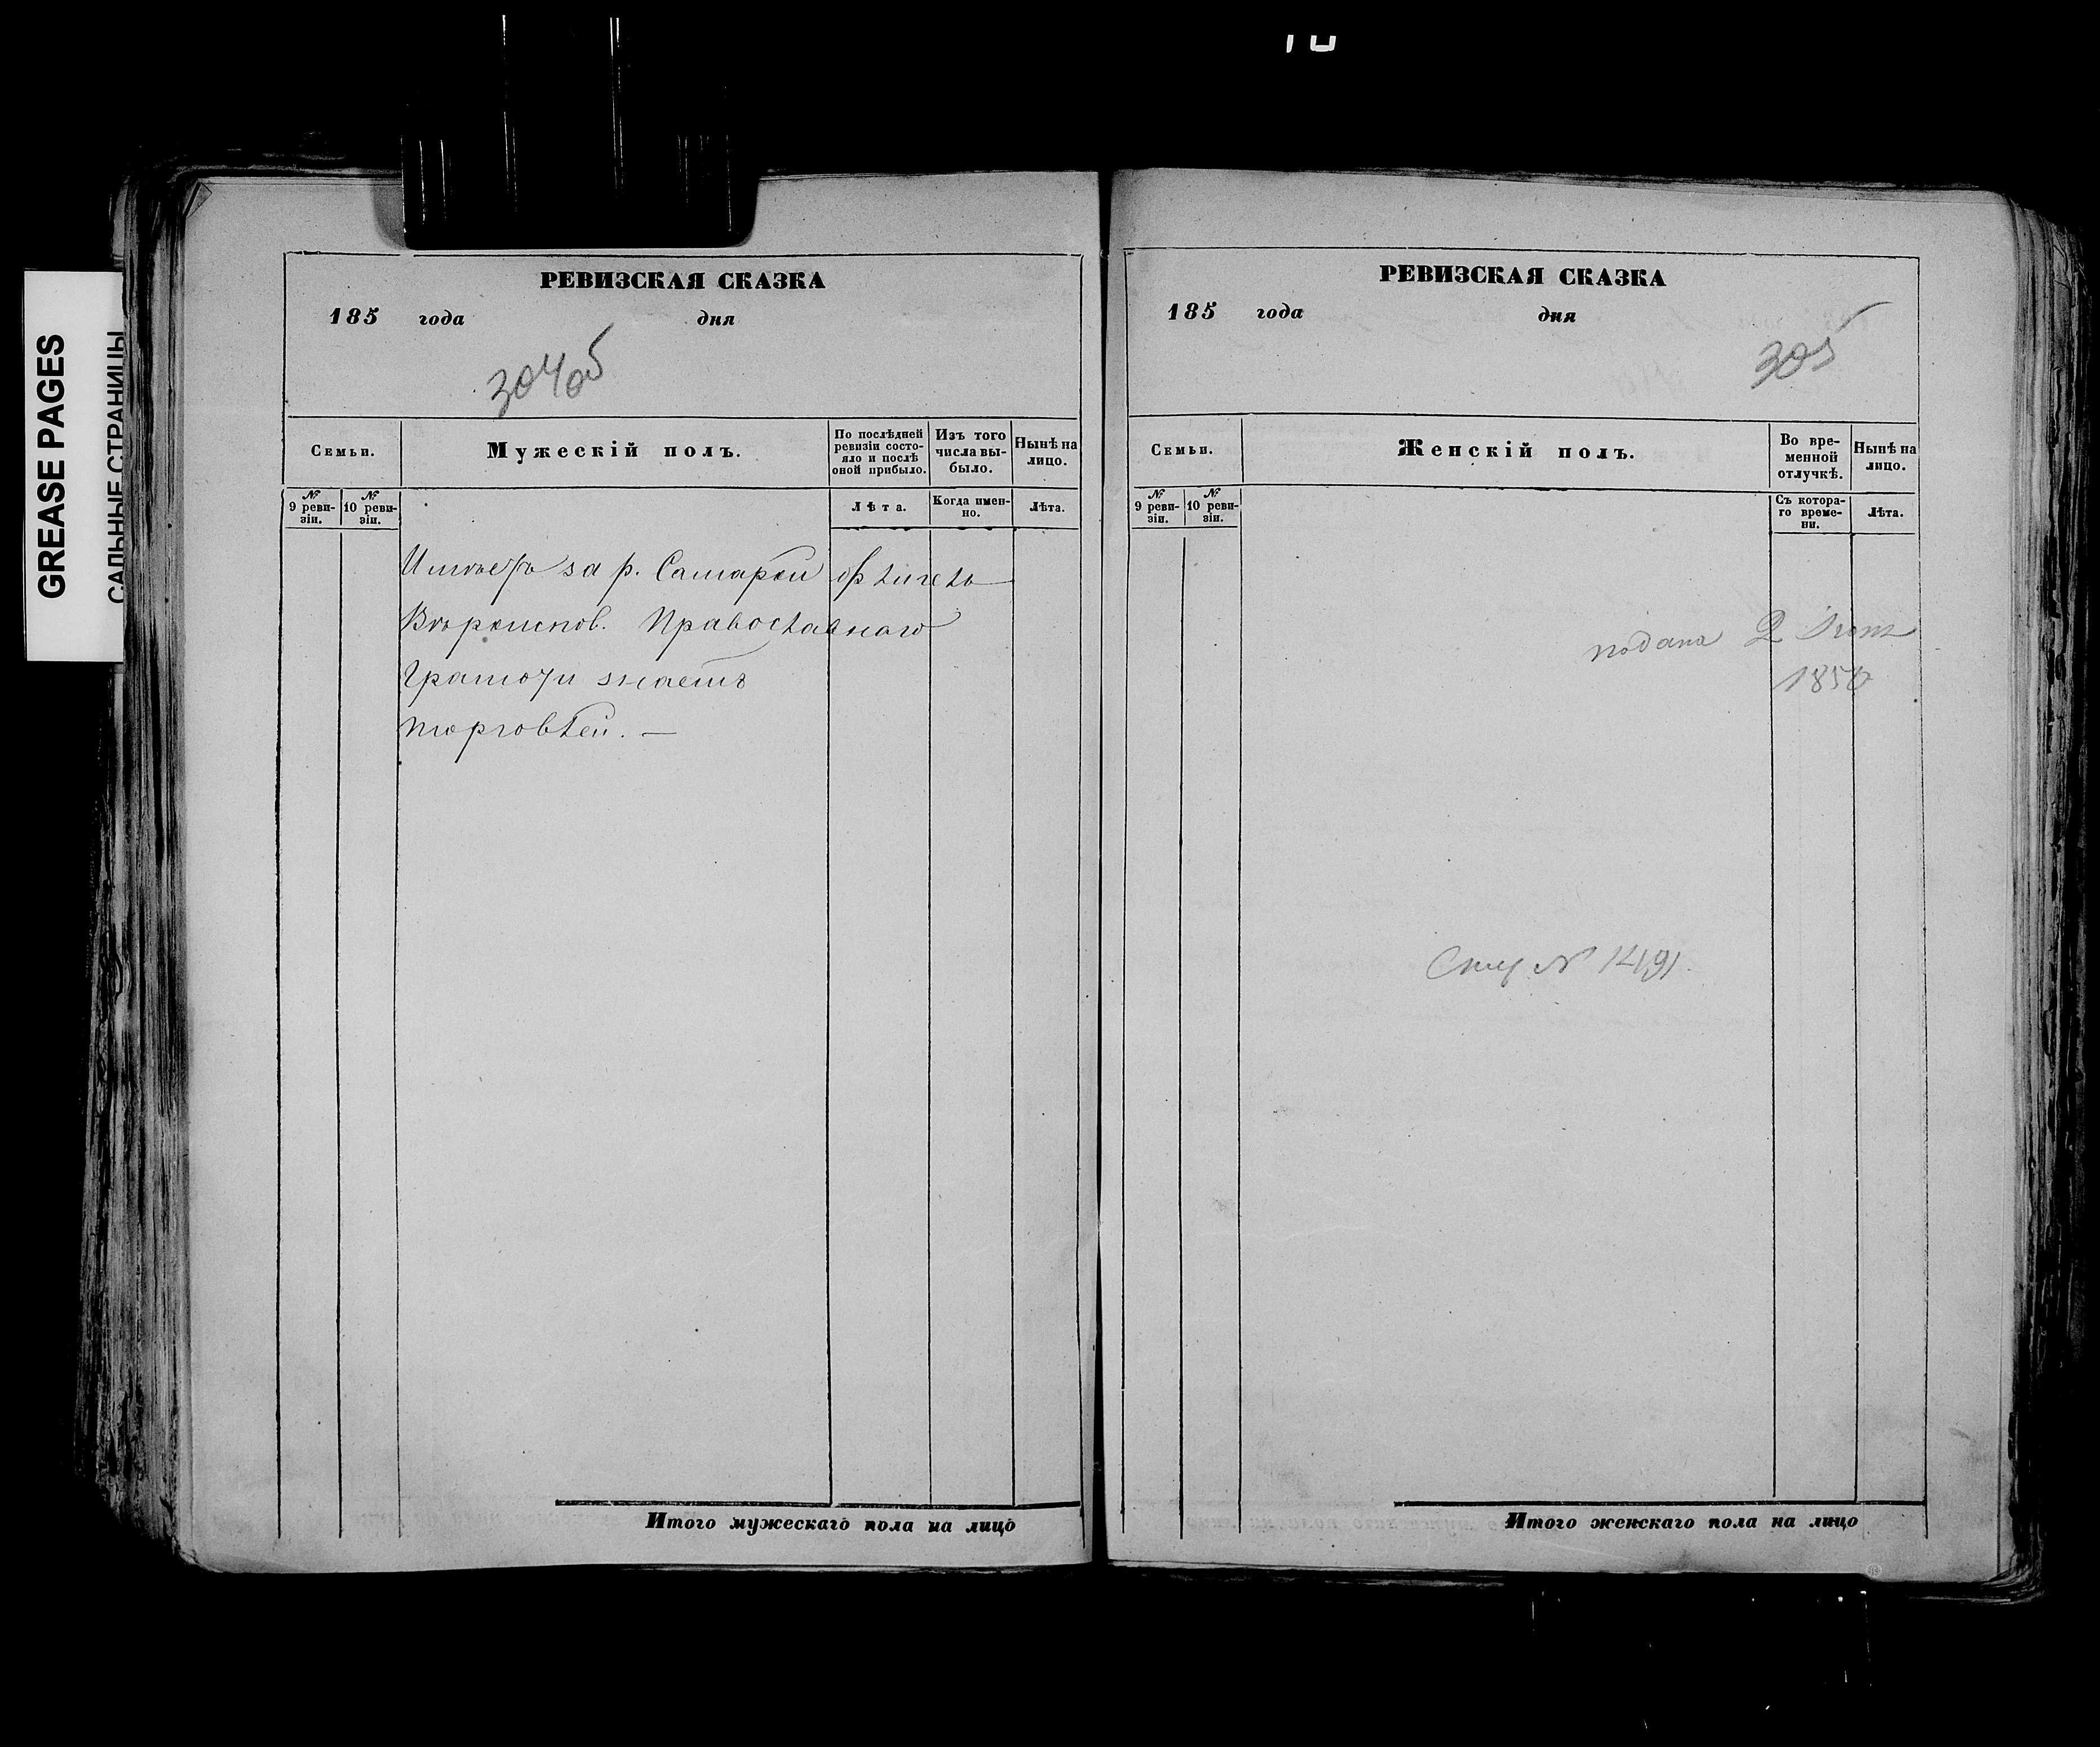 GREASE PAGES
САЛЬНЫЕ СТРАНИЦЫ
РЕВИЗСКАЯ СКАЗКА
185 года дня
304об
Семьи.
Мужескій полъ.
По послѣдней ревизіи состо-
яло и послѣ оной прибыло.
Изъ того числа вы-
было.
Нынѣ на лицо.
№ 9 реви-
зіи.
№ 10 реви-
зіи.
Лѣта.
Когда имен-
но.
Лѣта.
Имѣетъ за р. Самарой флигель
Вѣроиспов. Православнаго
Грамоту знаетъ
торговлей. —
Итого мужескаго пола на лицо
РЕВИЗСКАЯ СКАЗКА
185 года дня
305
Семьи.
Женскій полъ.
Во вре-
менной отлучкѣ.
Нынѣ на лицо.
№ 9 реви-
зіи.
№ 10 реви-
зіи.
Съ котора-
го време-
ни.
Лѣта.
подана 2
185
№ 1491.
Итого женскаго пола на лицо